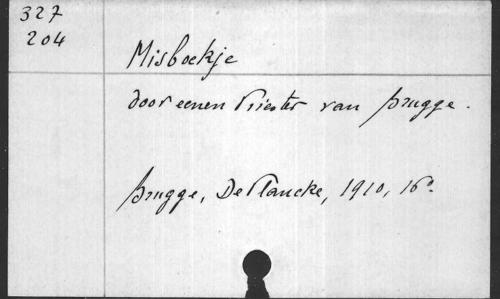 327
204
Misboekje
door eenen Priester van Brugge.
Brugge, De Plancke, 1910, 16°.